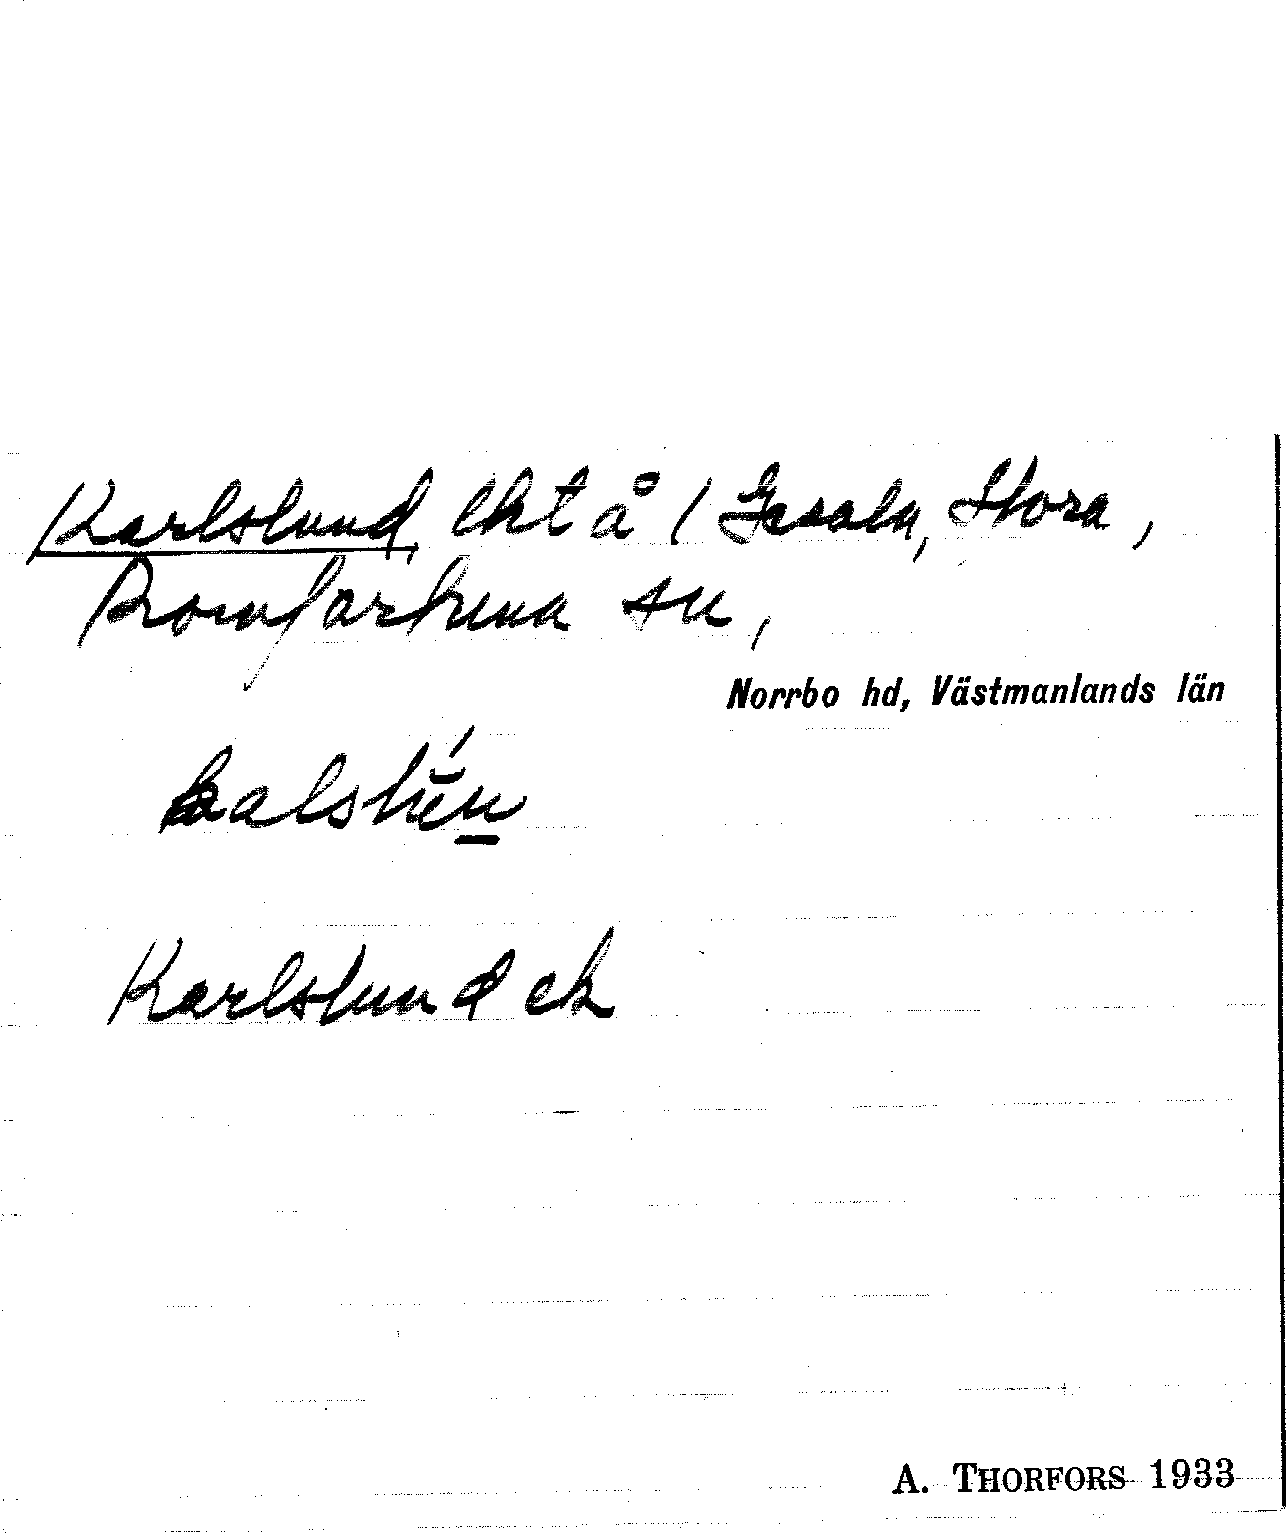 Karlslund, lht å 1 Gesala, Stora,
Romfartuna sn,
Norrbo hd, Västmanlands län
Karlslund ek
A. THORFORS 1933